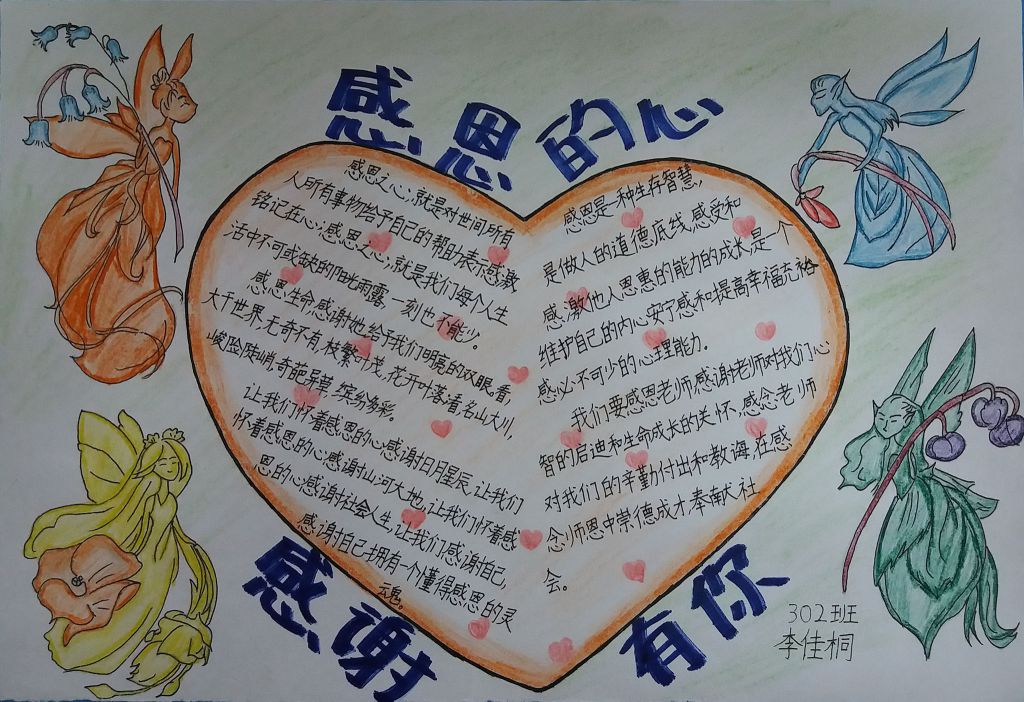 感恩的心
感恩之心,就是对世间所有
人所有事物给予自己的帮助表示感激,
铭记在心;感恩之心,就是我们每个人生
活中不可或缺的阳光雨露,一刻也不能少。
感恩生命,感谢她给予我们明亮的双眼,看,
大千世界,无奇不有,枝繁叶茂,花开叶落;看,名山大川,
峻险陡峭,奇葩异草,缤纷多彩。
让我们怀着感恩的心感谢日月星辰,让我们
怀着感恩的心感谢山河大地,让我们怀着感
恩的心感谢社会人生,让我们感谢自己,
感谢自己拥有一个懂得感恩的灵
魂。
感恩是一种生存智慧,
是做人的道德底线,感受和
感激他人恩惠的能力的成长,是一个
维护自己的内心安宁感和提高幸福充裕
感必不可少的心理能力。
我们要感恩老师,感谢老师对我们心
智的启迪和生命成长的关怀,感念老师
对我们的辛勤付出和教诲,在感
念师恩中崇德成才奉献社
会。
感谢有你
302班
李佳桐